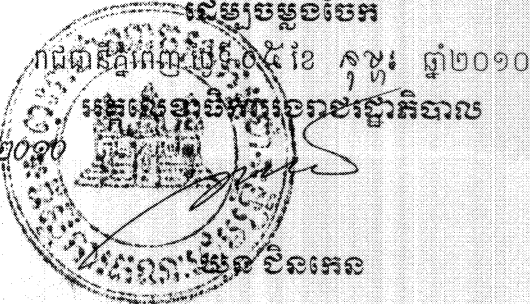 ដើម្បីចម្លងចែក
រាជធានីភ្នំពេញ ថ្ងៃទី ០៥ ខែ កុម្ភៈ ឆ្នាំ២០១០
អគ្គលេខាធិការរងរាជរដ្ឋាភិបាល
២០១០
ឃុន ជិនកេន